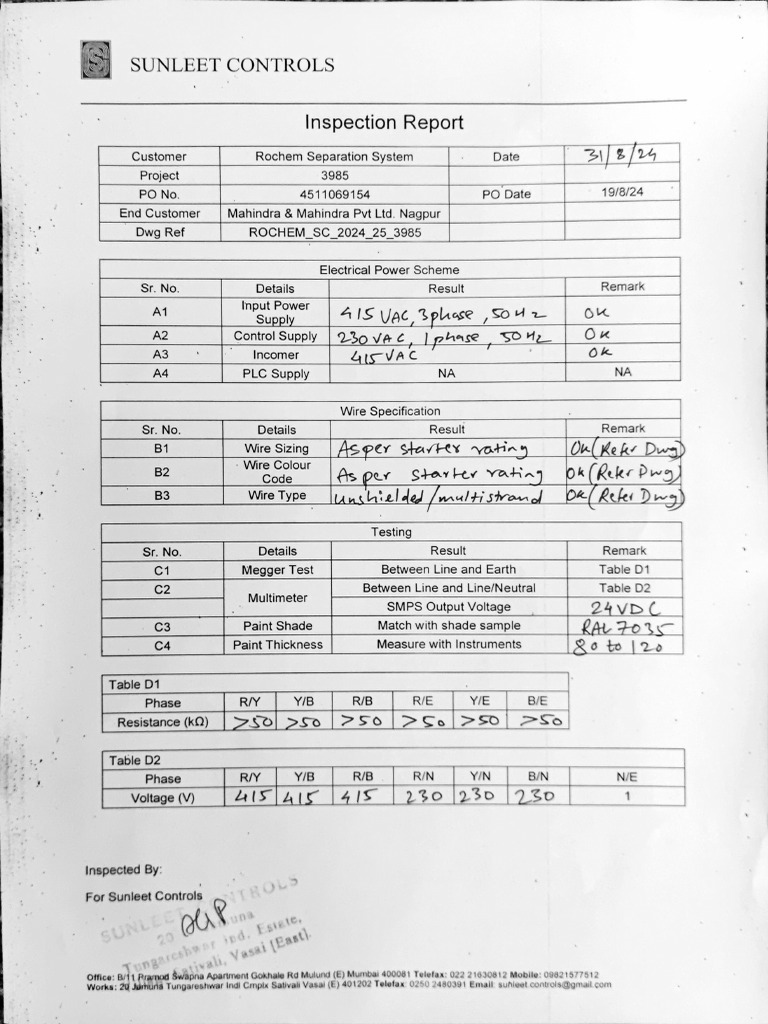 SUNLEET CONTROLS
Inspection Report
Customer Rochem Separation System Date 31/8/24
Project 3985
PO No. 4511069154 PO Date 19/8/24
End Customer Mahindra & Mahindra Pvt Ltd. Nagpur
Dwg Ref ROCHEM_SC_2024_25_3985
Electrical Power Scheme
Sr. No. Details Result Remark
A1 Input Power Supply 415 VAC, 3phase, 50Hz OK
A2 Control Supply 230 VAC, 1phase, 50Hz OK
A3 Incomer 415 VAC OK
A4 PLC Supply NA NA
Wire Specification
Sr. No. Details Result Remark
B1 Wire Sizing As per starter rating Ok (Refer Dwg)
B2 Wire Colour Code As per starter rating Ok (Refer Dwg)
B3 Wire Type unshielded/multistrand Ok (Refer Dwg)
Testing
Sr. No. Details Result Remark
C1 Megger Test Between Line and Earth Table D1
C2 Multimeter Between Line and Line/Neutral Table D2
SMPS Output Voltage 24VDC
C3 Paint Shade Match with shade sample RAL 7035
C4 Paint Thickness Measure with Instruments 80 to 120
Table D1
Phase R/Y Y/B R/B R/E Y/E B/E
Resistance (kΩ) >50 >50 >50 >50 >50 >50
Table D2
Phase R/Y Y/B R/B R/N Y/N B/N N/E
Voltage (V) 415 415 415 230 230 230 1
Inspected By:
For Sunleet Controls
SUNLEET CONTROLS
Tungareshwar Ind. Estete,
Sativali, Vasai [East].
Office: B/11 Pramod Swapna Apartment Gokhale Rd Mulund (E) Mumbai 400081 Telefax: 022 21630812 Mobile: 09821577512
Works: 20 Jumuna Tungareshwar Indl Cmplx Sativali Vasai (E) 401202 Telefax: 0250 2480391 Email: sunleet.controls@gmail.com